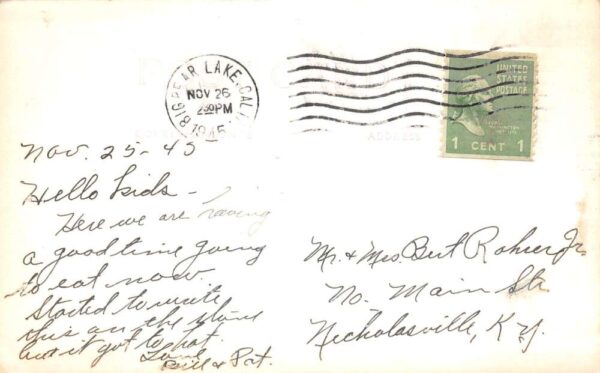 BIG BEAR LAKE, CALIF.
NOV 26
2 30 PM
1945
UNITED
STATES
POSTAGE
1 CENT 1
ADDRESS
Nov. 25-45
Hello kids -
Here we are having
a good time going
to eat now.
Started to write
this on the stove
but it got to hot.
Love
Bill & Pat.
Mr. & Mrs Bert Rohrer Jr.
No. Main Str.
Nicholasville, Ky.